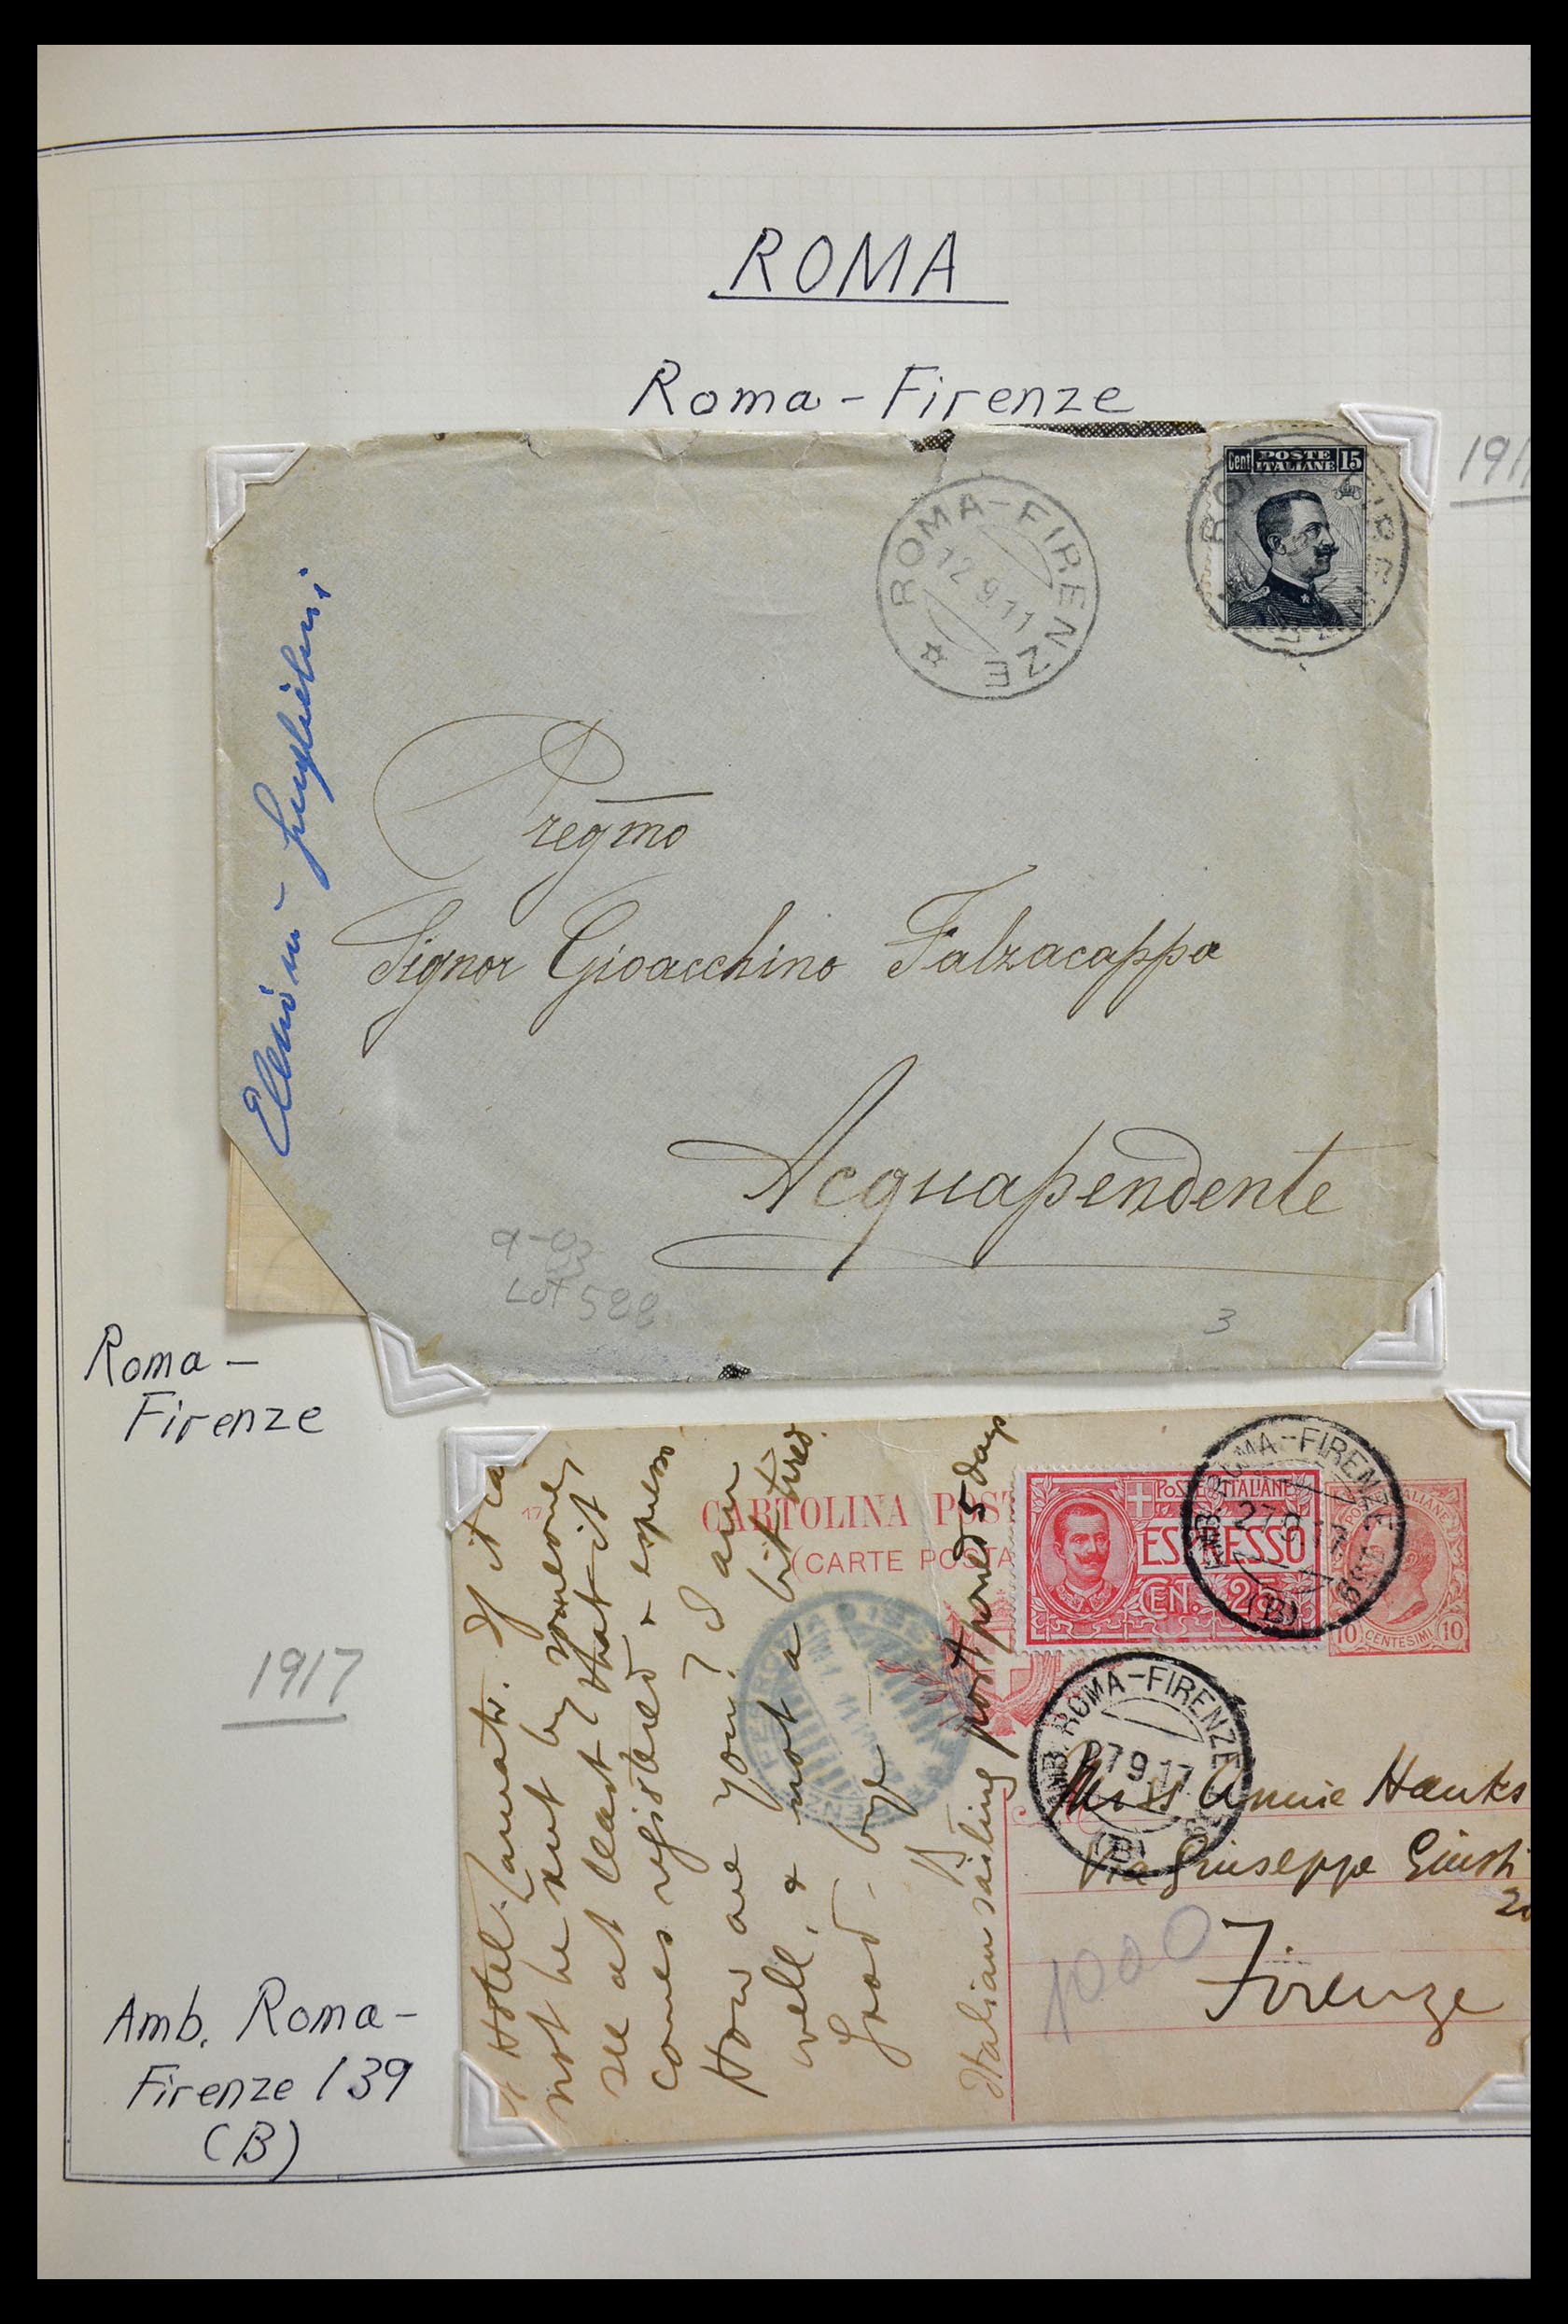 ROMA
Roma - Firenze
191
Cent POSTE ITALIANE 15
ROMA-FIRENZE
12 9.11
Pregmo
Signor Gioacchino Falzacappa
Acquapendente
9-03
Lot 588
3
Roma -
Firenze
1917
Amb. Roma -
Firenze 139
(B)
CARTOLINA POST
(CARTE POSTA
POSTE ITALIANE
ESPRESSO
CEN. 25
10 CENTESIMI 10
AMB. ROMA-FIRENZE 139
27 9 17
(B)
AMB. ROMA-FIRENZE
27 9 17
(B)
Hotel. If it can
not be sent by someone,
see at least that it
comes registered + espresso
How are you? I am
well, & not a bit tired.
Good-bye
Italian sailing postponed 5 days
Miss Annie Hanks
Via Giuseppe Giusti
Firenze
1000